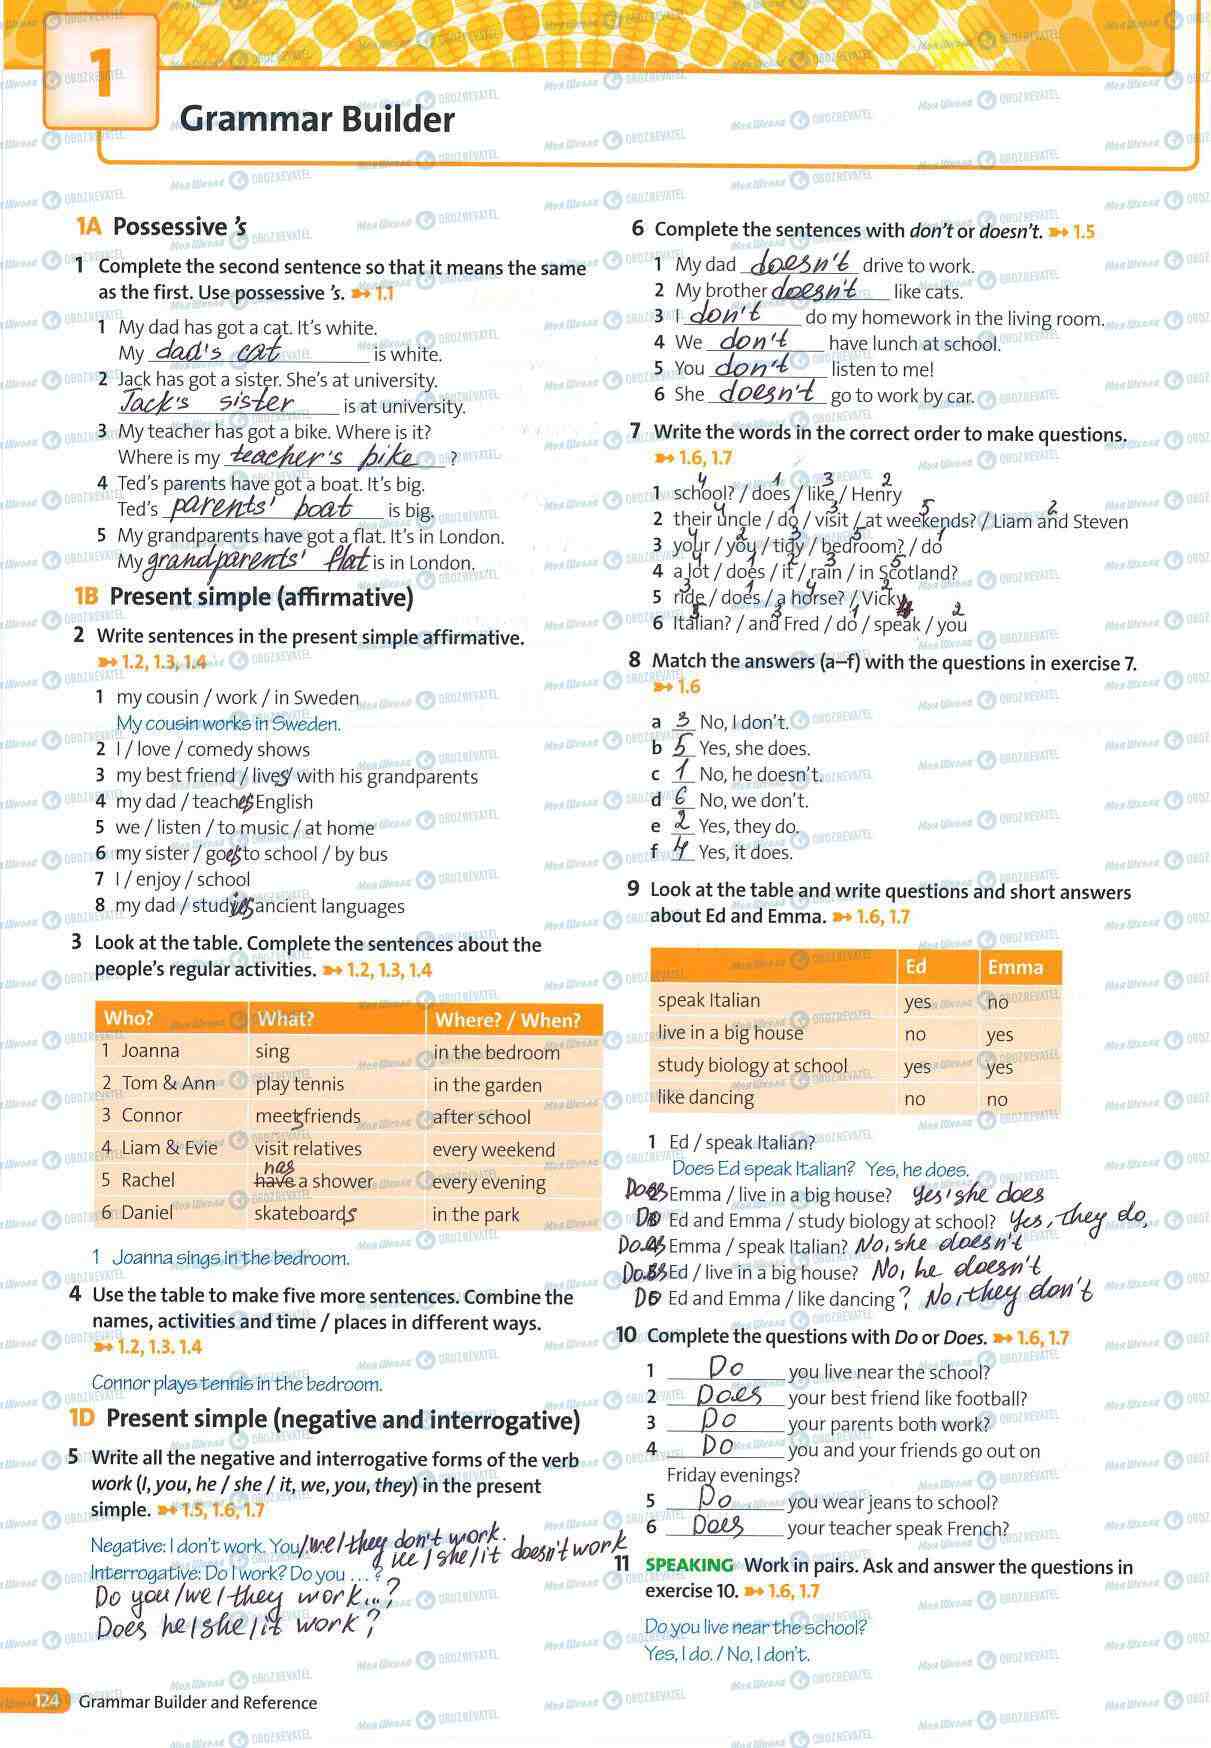 1
Grammar Builder
1A Possessive 's
1 Complete the second sentence so that it means the same
as the first. Use possessive 's. ➽ 1.1
1 My dad has got a cat. It's white.
My dad's cat is white.
2 Jack has got a sister. She's at university.
Jack's sister is at university.
3 My teacher has got a bike. Where is it?
Where is my teacher's bike ?
4 Ted's parents have got a boat. It's big.
Ted's parents' boat is big.
5 My grandparents have got a flat. It's in London.
My grandparents' flat is in London.
1B Present simple (affirmative)
2 Write sentences in the present simple affirmative.
➽ 1.2, 1.3, 1.4
1 my cousin / work / in Sweden
My cousin works in Sweden.
2 I / love / comedy shows
3 my best friend / lives / with his grandparents
4 my dad / teaches English
5 we / listen / to music / at home
6 my sister / goes to school / by bus
7 I / enjoy / school
8 my dad / studies ancient languages
3 Look at the table. Complete the sentences about the
people's regular activities. ➽ 1.2, 1.3, 1.4
Who? What? Where? / When?
1 Joanna sing in the bedroom
2 Tom & Ann play tennis in the garden
3 Connor meets friends after school
4 Liam & Evie visit relatives every weekend
has
5 Rachel have a shower every evening
6 Daniel skateboards in the park
1 Joanna sings in the bedroom.
4 Use the table to make five more sentences. Combine the
names, activities and time / places in different ways.
➽ 1.2, 1.3. 1.4
Connor plays tennis in the bedroom.
1D Present simple (negative and interrogative)
5 Write all the negative and interrogative forms of the verb
work (I, you, he / she / it, we, you, they) in the present
simple. ➽ 1.5, 1.6, 1.7
Negative: I don't work. You /we/they don't work.
he/she/it doesn't work
Interrogative: Do I work? Do you … ?
Do you/we/they work...?
Does he/she/it work?
124 Grammar Builder and Reference
6 Complete the sentences with don't or doesn't. ➽ 1.5
1 My dad doesn't drive to work.
2 My brother doesn't like cats.
3 I don't do my homework in the living room.
4 We don't have lunch at school.
5 You don't listen to me!
6 She doesn't go to work by car.
7 Write the words in the correct order to make questions.
➽ 1.6, 1.7
4 1 3 2
1 school? / does / like / Henry
4 1 3 5 2
2 their uncle / do / visit / at weekends? / Liam and Steven
4 2 3 5 1
3 your / you / tidy / bedroom? / do
4 1 2 3 5
4 a lot / does / it / rain / in Scotland?
3 1 4 2
5 ride / does / a horse? / Vicky
5 3 1 4 2
6 Italian? / and Fred / do / speak / you
8 Match the answers (a–f) with the questions in exercise 7.
➽ 1.6
a 3 No, I don't.
b 5 Yes, she does.
c 1 No, he doesn't.
d 6 No, we don't.
e 2 Yes, they do.
f 4 Yes, it does.
9 Look at the table and write questions and short answers
about Ed and Emma. ➽ 1.6, 1.7
Ed Emma
speak Italian yes no
live in a big house no yes
study biology at school yes yes
like dancing no no
1 Ed / speak Italian?
Does Ed speak Italian? Yes, he does.
Does Emma / live in a big house? Yes, she does
Do Ed and Emma / study biology at school? Yes, they do.
Does Emma / speak Italian? No, she doesn't
Does Ed / live in a big house? No, he doesn't
Do Ed and Emma / like dancing? No, they don't
10 Complete the questions with Do or Does. ➽ 1.6, 1.7
1 Do you live near the school?
2 Does your best friend like football?
3 Do your parents both work?
4 Do you and your friends go out on
Friday evenings?
5 Do you wear jeans to school?
6 Does your teacher speak French?
11 SPEAKING Work in pairs. Ask and answer the questions in
exercise 10. ➽ 1.6, 1.7
Do you live near the school?
Yes, I do. / No, I don't.